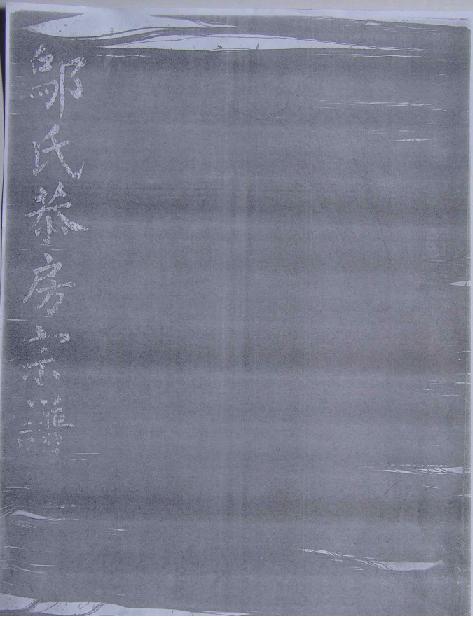 鄒氏恭房宗譜